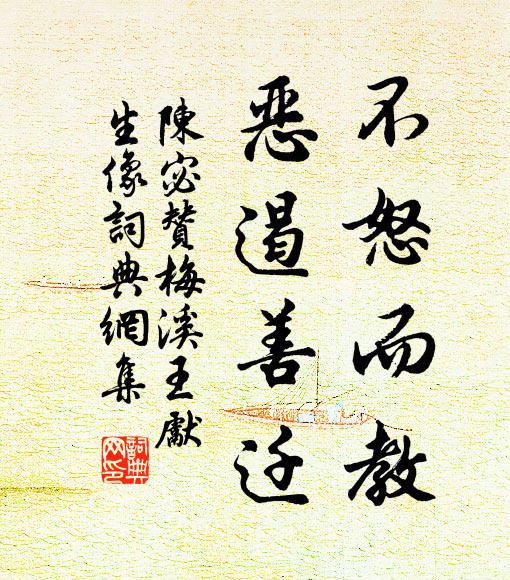 不怒而教
惡遏善迁
陳宓贊梅溪王獻
生像詞典網集
詞典网印